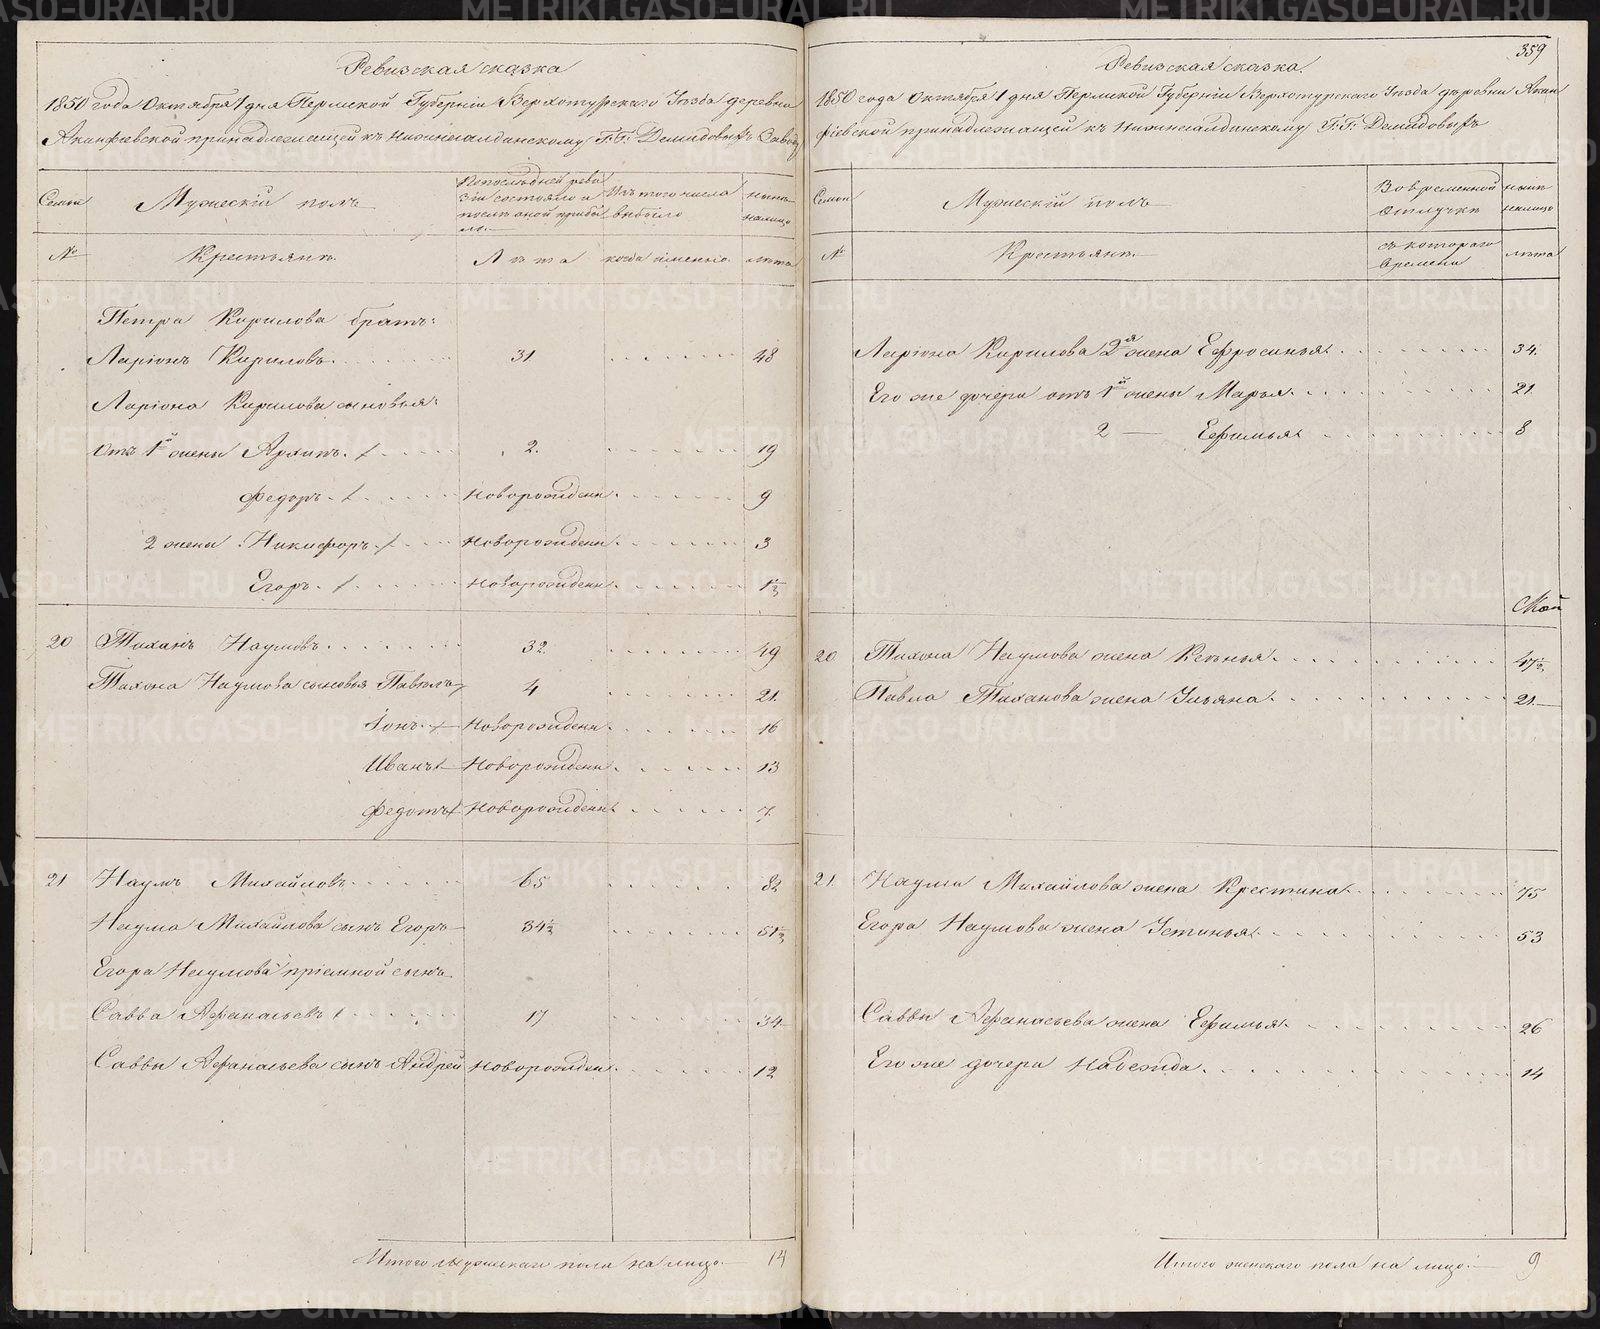 Ревизская сказка
1850 года Октября 1 дня Пермской Губерніи Верхотурскаго Уезда деревни
Акинфіевской принадлежащей къ Нижнесалдинскому Г.Г: Демидовыхъ Заводу
Семьи
Мужескій полъ
По последней реви
зіи состояло и
после оной прибы
ло
Изъ того числа
выбыло
ныне
налицо
№
Крестьяне
Лета
когда именно
лета
Петра Кирилова братъ:
Ларіонъ Кириловъ 31 48
Ларіона Кирилова сыновья:
Отъ 1й жены Архипъ 2. 19
Федоръ Новорожденн 9
2 жены Никифоръ Новорожденн 3
Егоръ Новорожденн 1½
20 Тиханъ Наумовъ 32 49
Тихона Наумова сыновья Павелъ 4 21
Іонъ Новорожденн 16
Иванъ Новорожденн 13
Федотъ Новорожденн 7
21 Наумъ Михайловъ 65 82
Наума Михайлова сынъ Егоръ 34½ 51½
Егора Наумова пріемной сынъ
Савва Афанасьевъ 17 34
Саввы Афанасьева сынъ Андрей Новорожден 12
Итого мужескаго пола на лицо 14
359
Ревизская сказка
1850 года Октября 1 дня Пермской Губерніи Верхотурскаго Уезда деревни Акин
фіевской принадлежащей къ Нижнесалдинскому Г:Г: Демидовыхъ
Семьи
Мужескій полъ
Во временной
отлучке
ныне
налицо
№
Крестьяне
съ котораго
времени
лета
Ларіона Кирилова 2я жена Ефросинья 34.
Его же дочери отъ 1й жены Марья 21
2 — Ефимья 8
20 Тихона Наумова жена Ксенья 47½
Павла Тиханова жена Ульяна 21
21 Наума Михайлова жена Крестина 75
Егора Наумова жена Устинья 53
Саввы Афанасьева жена Ефимья 26
Его же дочери Надежда 14
Итого женскаго пола на лицо 9
METRIKI.GASO-URAL.RU